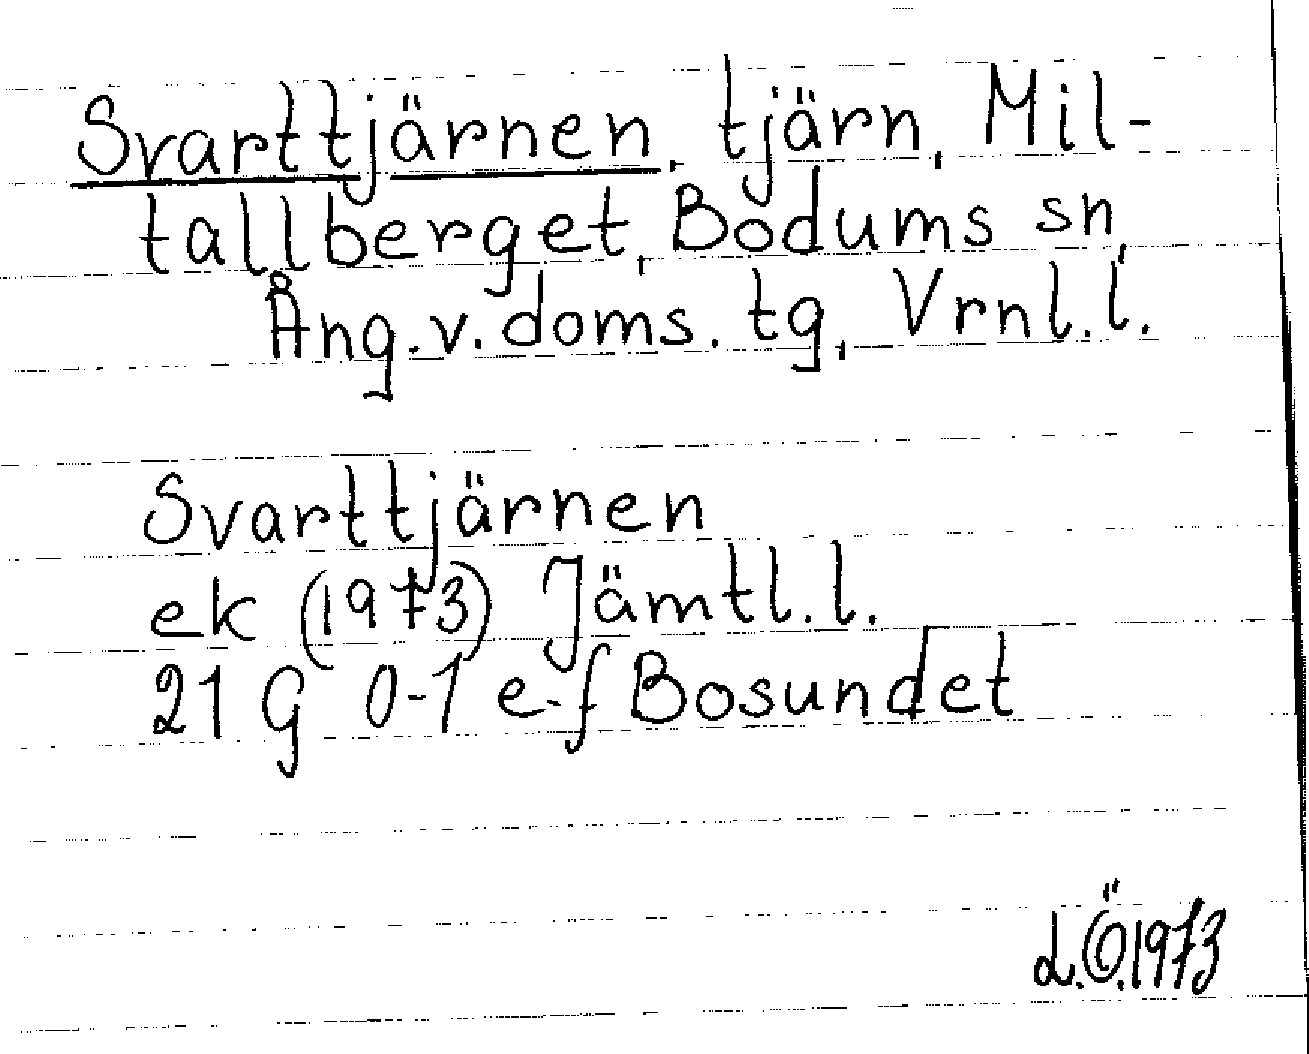 Svarttjärnen, tjärn, Mil-
tallberget, Bodums sn,
Ång. v. doms. tg, Vrnl. l.
Svarttjärnen
ek (1973) Jämtl. l.
21 G 0-1 e-f Bosundet
L.Ö.1973